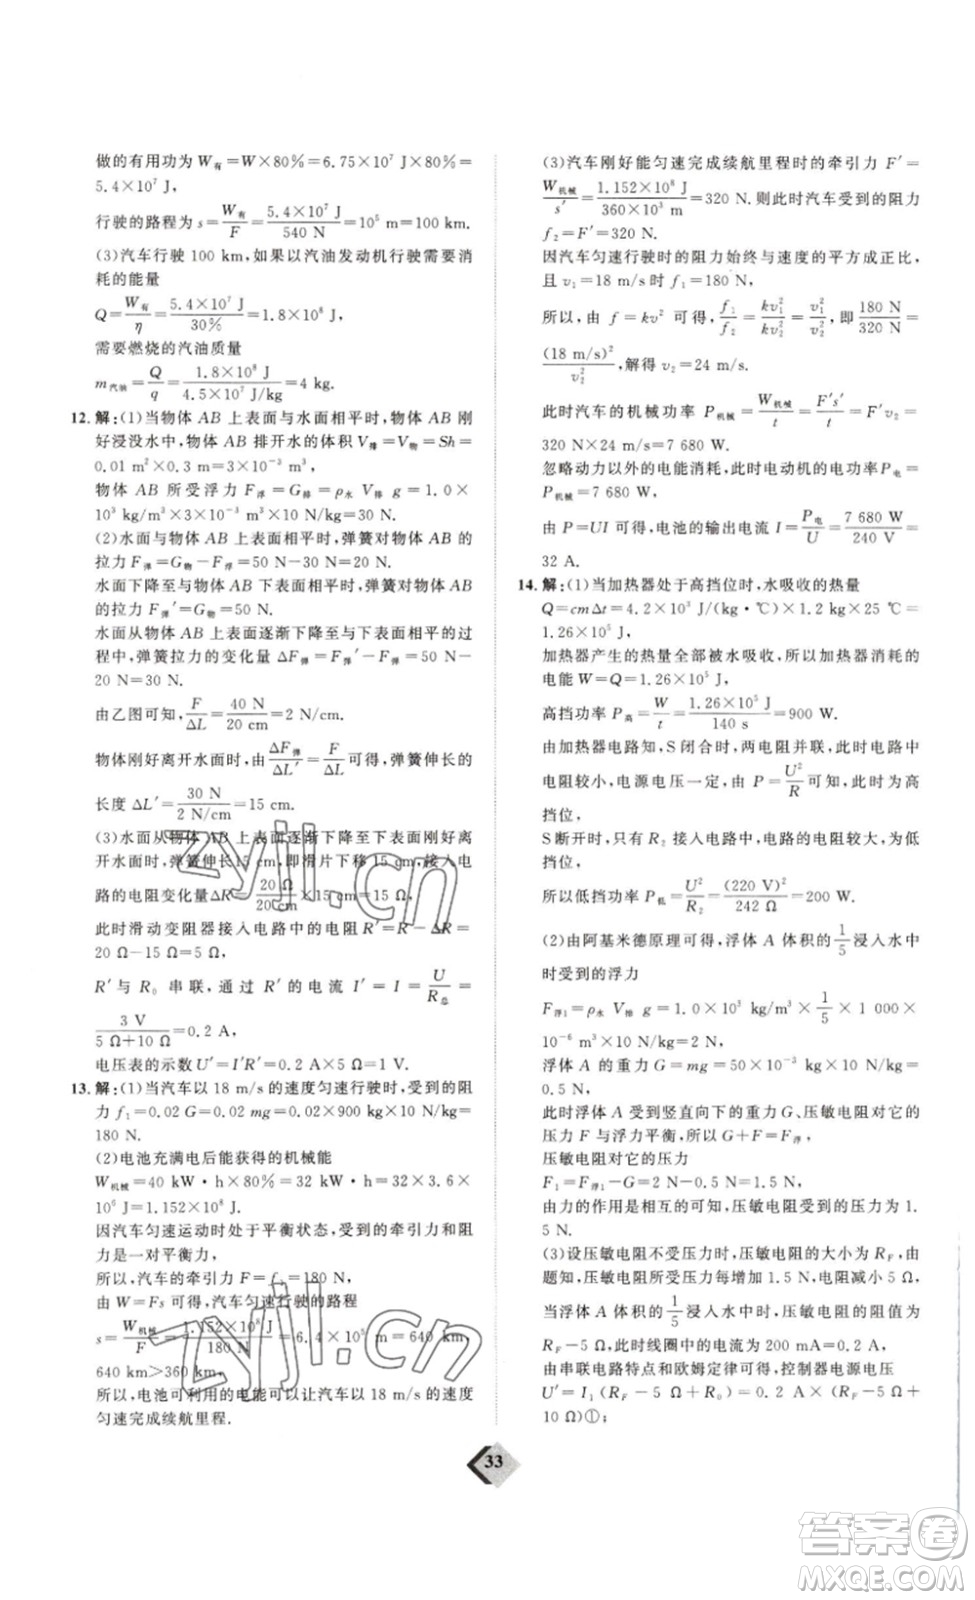 做的有用功为 W有=W×80%=6.75×10⁷ J×80%=
5.4×10⁷ J,
行驶的路程为 s=W有/F=5.4×10⁷ J/540 N=10⁵ m=100 km.
(3)汽车行驶 100 km,如果以汽油发动机行驶需要消
耗的能量
Q=W有/η=5.4×10⁷ J/30%=1.8×10⁸ J,
需要燃烧的汽油质量
m汽油=Q/q=1.8×10⁸ J/4.5×10⁷ J/kg=4 kg.
12.解:(1)当物体 AB 上表面与水面相平时,物体 AB 刚
好浸没水中,物体 AB 排开水的体积 V排=V物=Sh=
0.01 m²×0.3 m=3×10⁻³ m³,
物体 AB 所受浮力 F浮=G排=ρ水 V排 g=1.0×
10³ kg/m³×3×10⁻³ m³×10 N/kg=30 N.
(2)水面与物体 AB 上表面相平时,弹簧对物体 AB
的拉力 F弹=G物-F浮=50 N-30 N=20 N.
水面下降至与物体 AB 下表面相平时,弹簧对物体 AB
的拉力 F弹′=G物=50 N,
水面从物体 AB 上表面逐渐下降至与下表面相平的过
程中,弹簧拉力的变化量 ΔF弹=F弹′-F弹=50 N-
20 N=30 N.
由乙图可知,F/ΔL=40 N/20 cm=2 N/cm,
物体刚好离开水面时,由 ΔF弹/ΔL′=F/ΔL 可得,弹簧伸长的
长度 ΔL′=30 N/2 N/cm=15 cm.
(3)水面从物体 AB 上表面逐渐下降至下表面刚好离
开水面时,弹簧伸长15 cm,即滑片下移 15 cm,接入电
路的电阻变化量 ΔR=20 Ω/20 cm×15 cm=15 Ω,
此时滑动变阻器接入电路中的电阻 R′=R-ΔR=
20 Ω-15 Ω=5 Ω,
R′与 R₀ 串联,通过 R′的电流 I′=I=U/R总=
3 V/5 Ω+10 Ω=0.2 A,
电压表的示数 U′=I′R′=0.2 A×5 Ω=1 V.
13.解:(1)当汽车以 18 m/s 的速度匀速行驶时,受到的阻
力 f₁=0.02 G=0.02 mg=0.02×900 kg×10 N/kg=
180 N.
(2)电池充满电后能获得的机械能
W机械=40 kW·h×80%=32 kW·h=32×3.6×
10⁶ J=1.152×10⁸ J.
因汽车匀速运动时处于平衡状态,受到的牵引力和阻
力是一对平衡力,
所以,汽车的牵引力 F=f₁=180 N,
由 W=Fs 可得,汽车匀速行驶的路程
s=W机械/F=1.152×10⁸ J/180 N=6.4×10⁵ m=640 km,
640 km>360 km,
所以,电池可利用的电能可以让汽车以 18 m/s 的速度
匀速完成续航里程.
(3)汽车刚好能匀速完成续航里程时的牵引力 F′=
W机械/s′=1.152×10⁸ J/360×10³ m=320 N. 则此时汽车受到的阻力
f₂=F′=320 N.
因汽车匀速行驶时的阻力始终与速度的平方成正比,
且 v₁=18 m/s时 f₁=180 N,
所以,由 f=kv² 可得,f₁/f₂=kv₁²/kv₂²=v₁²/v₂²,即180 N/320 N=
(18 m/s)²/v₂²,解得 v₂=24 m/s,
此时汽车的机械功率 P机械=W机械/t=F′s′/t=F′v₂=
320 N×24 m/s=7 680 W.
忽略动力以外的电能消耗,此时电动机的电功率 P电=
P机械=7 680 W,
由 P=UI 可得,电池的输出电流 I=P电/U=7 680 W/240 V=
32 A.
14.解:(1)当加热器处于高挡位时,水吸收的热量
Q=cmΔt=4.2×10³ J/(kg·℃)×1.2 kg×25 ℃=
1.26×10⁵ J,
加热器产生的热量全部被水吸收,所以加热器消耗的
电能 W=Q=1.26×10⁵ J,
高挡功率 P高=W/t=1.26×10⁵ J/140 s=900 W.
由加热器电路知,S 闭合时,两电阻并联,此时电路中
电阻较小,电源电压一定,由 P=U²/R可知,此时为高
挡位,
S 断开时,只有 R₂ 接入电路中,电路的电阻较大,为低
挡位,
所以低挡功率 P低=U²/R₂=(220 V)²/242 Ω=200 W.
(2)由阿基米德原理可得,浮体 A 体积的1/5浸入水中
时受到的浮力
F浮1=ρ水 V排 g=1.0×10³ kg/m³×1/5×1 000×
10⁻⁶ m³×10 N/kg=2 N,
浮体 A 的重力 G=mg=50×10⁻³ kg×10 N/kg=
0.5 N,
此时浮体 A 受到竖直向下的重力 G、压敏电阻对它的
压力 F 与浮力平衡,所以 G+F=F浮,
压敏电阻对它的压力
F₁=F浮1-G=2 N-0.5 N=1.5 N,
由力的作用是相互的可知,压敏电阻受到的压力为 1.
5 N.
(3)设压敏电阻不受压力时,压敏电阻的阻值为 RF,由
题知,压敏电阻所受压力每增加 1.5 N,电阻减小 5 Ω,
当浮体 A 体积的1/5浸入水中时,压敏电阻的阻值为
RF-5 Ω,此时线圈中的电流为 200 mA=0.2 A,
由串联电路特点和欧姆定律可得,控制器电源电压
U′=I₁(RF-5 Ω+R₀)=0.2 A×(RF-5 Ω+
10 Ω)①;
33
zyjl.cn
zyjl.cn
答案卷
MXQE.COM